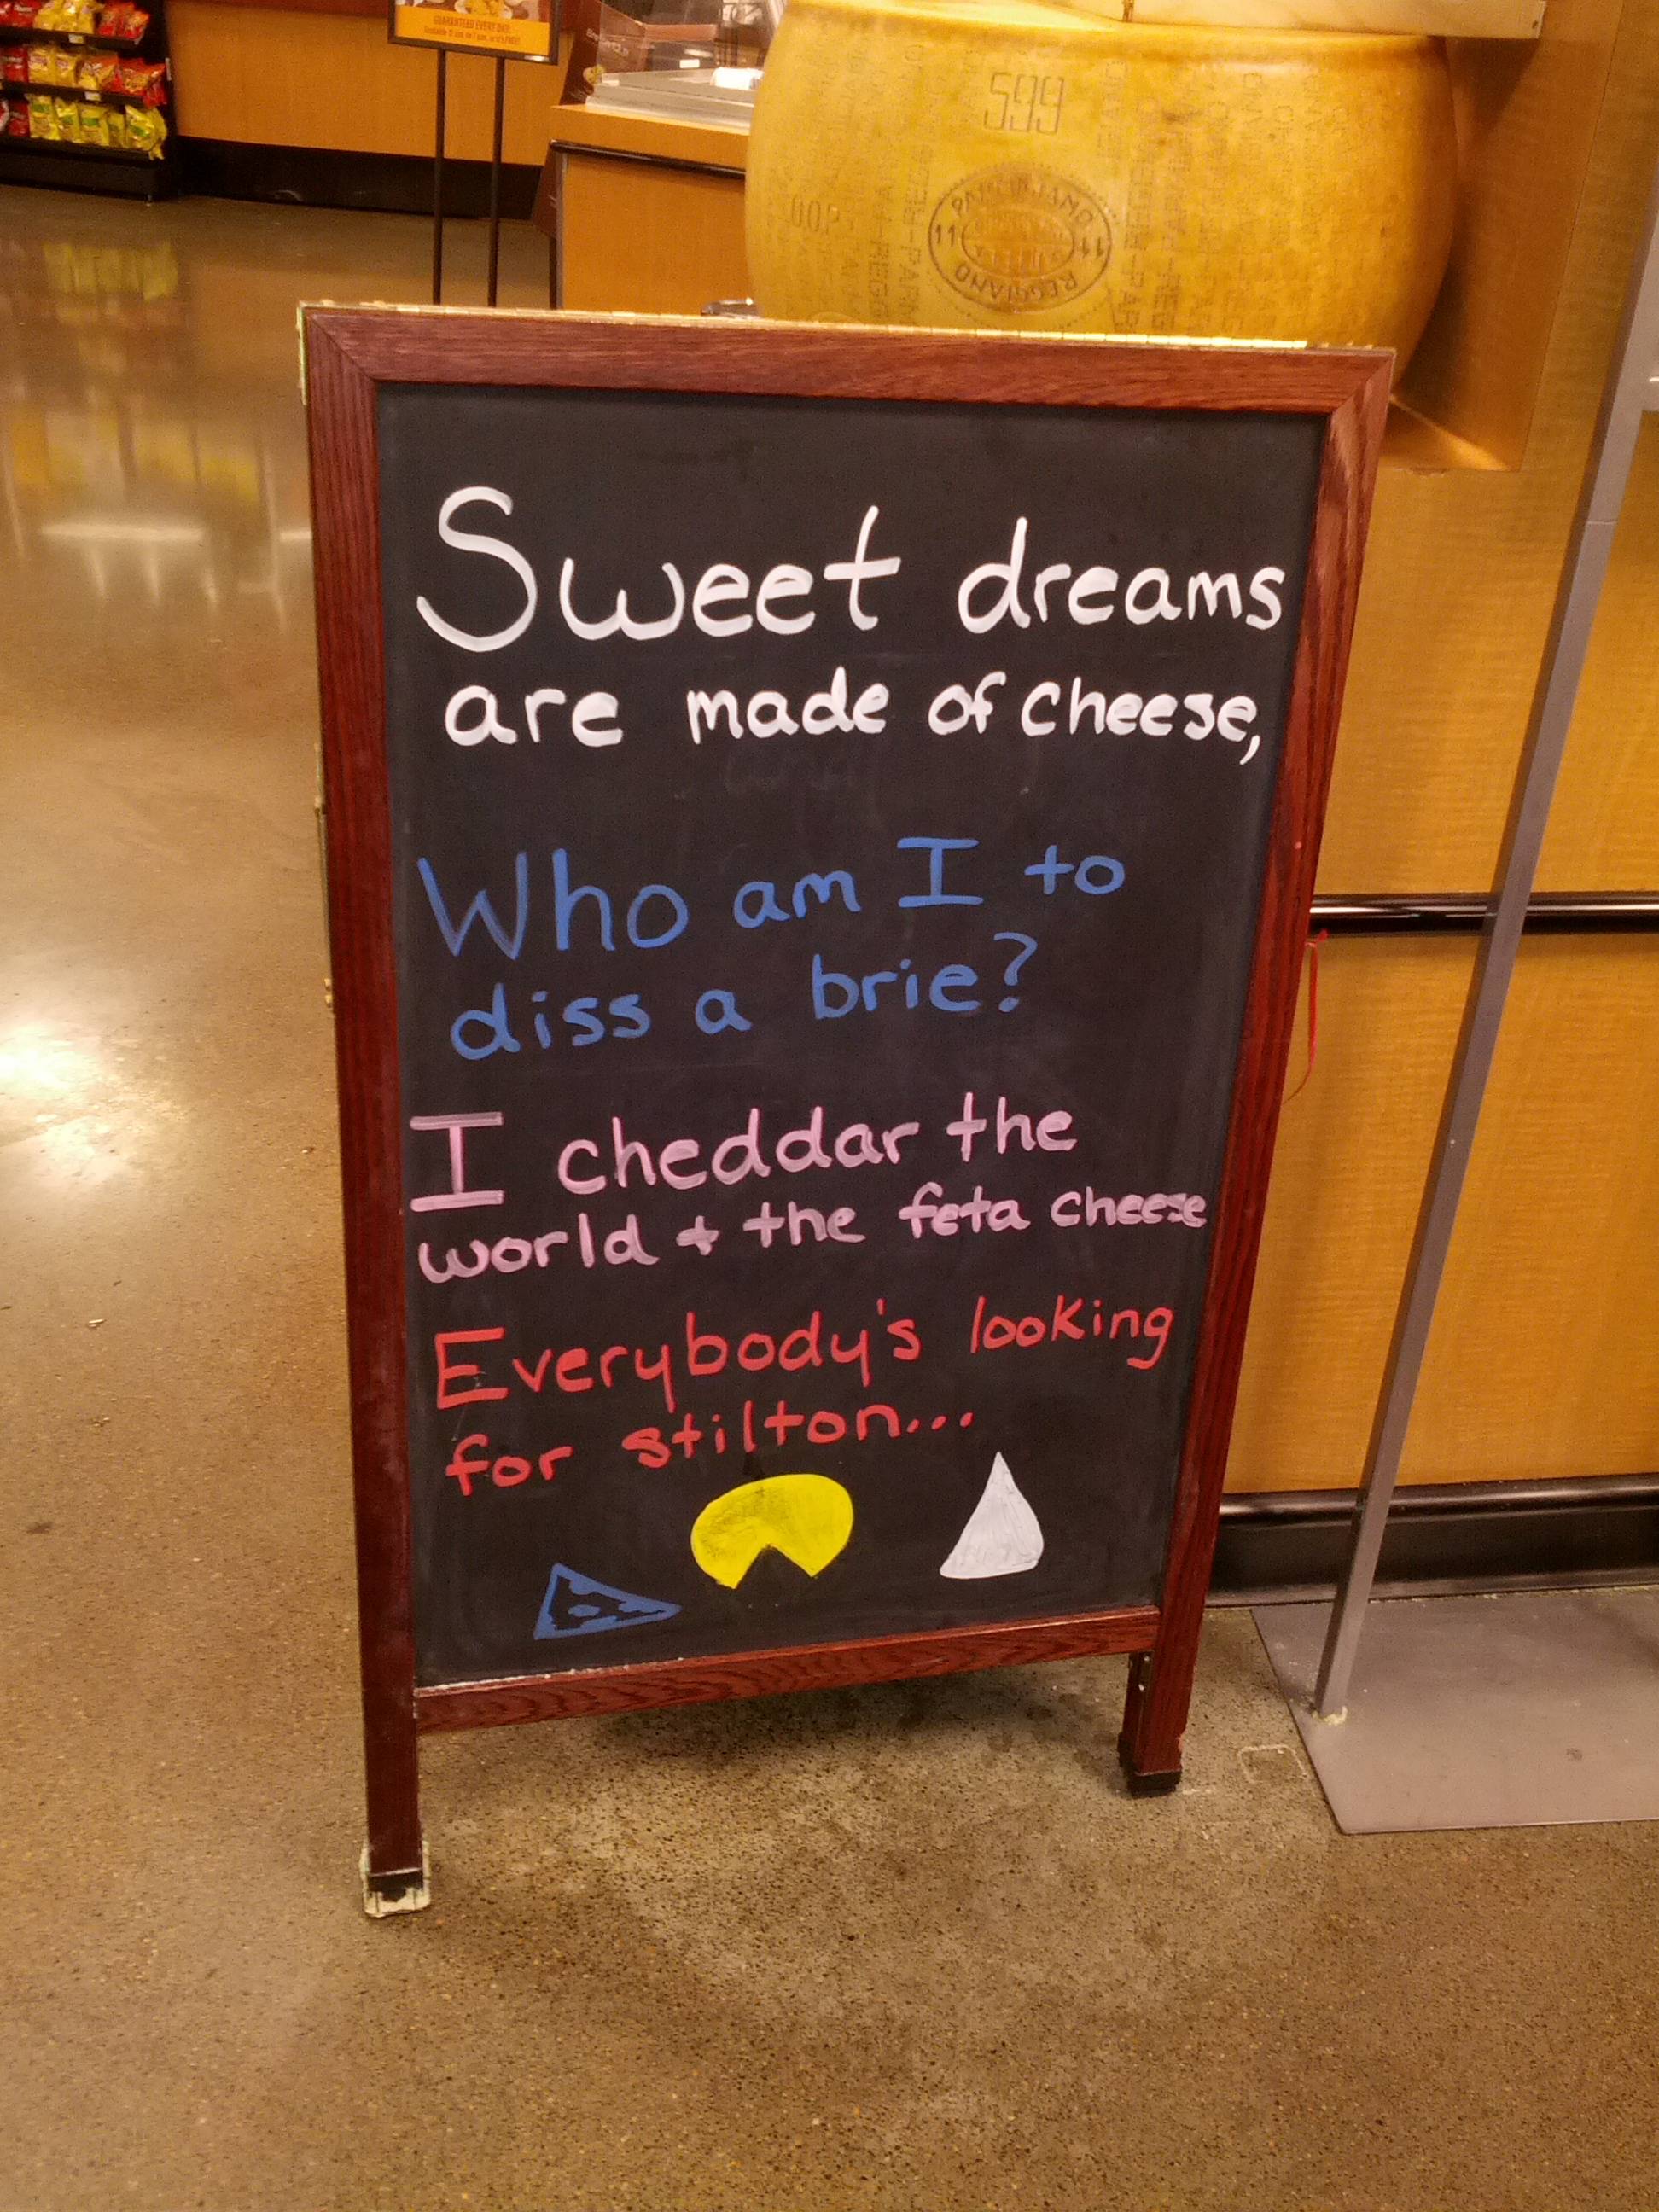 GUARANTEED EVERY DAY.
599
D.O.P.
PARMIGIANO
REGGIANO
Sweet dreams
are made of cheese,
Who am I to
diss a brie?
I cheddar the
world + the feta cheese
Everybody's looking
for stilton...